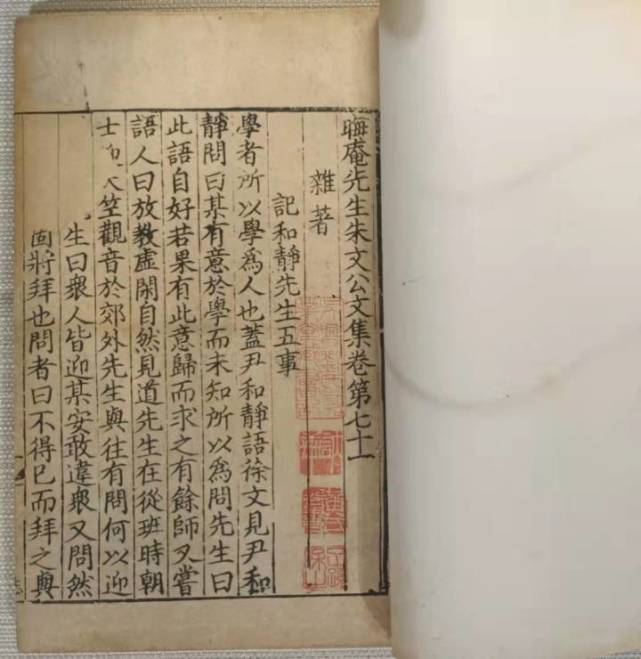 晦庵先生朱文公文集卷第七十一
雜著
記和靜先生五事
學者所以學爲人也蓋尹和靜語徐文見尹和
靜問曰某有意於學而未知所以爲問先生曰
此語自好若果有此意歸而求之有餘師又嘗
語人曰放教虛閑自然見道先生在從班時朝
士竺觀音於郊外先生與往有問何以迎
生曰衆人皆迎某安敢違衆又問然
固將拜也問者曰不得已而拜之與